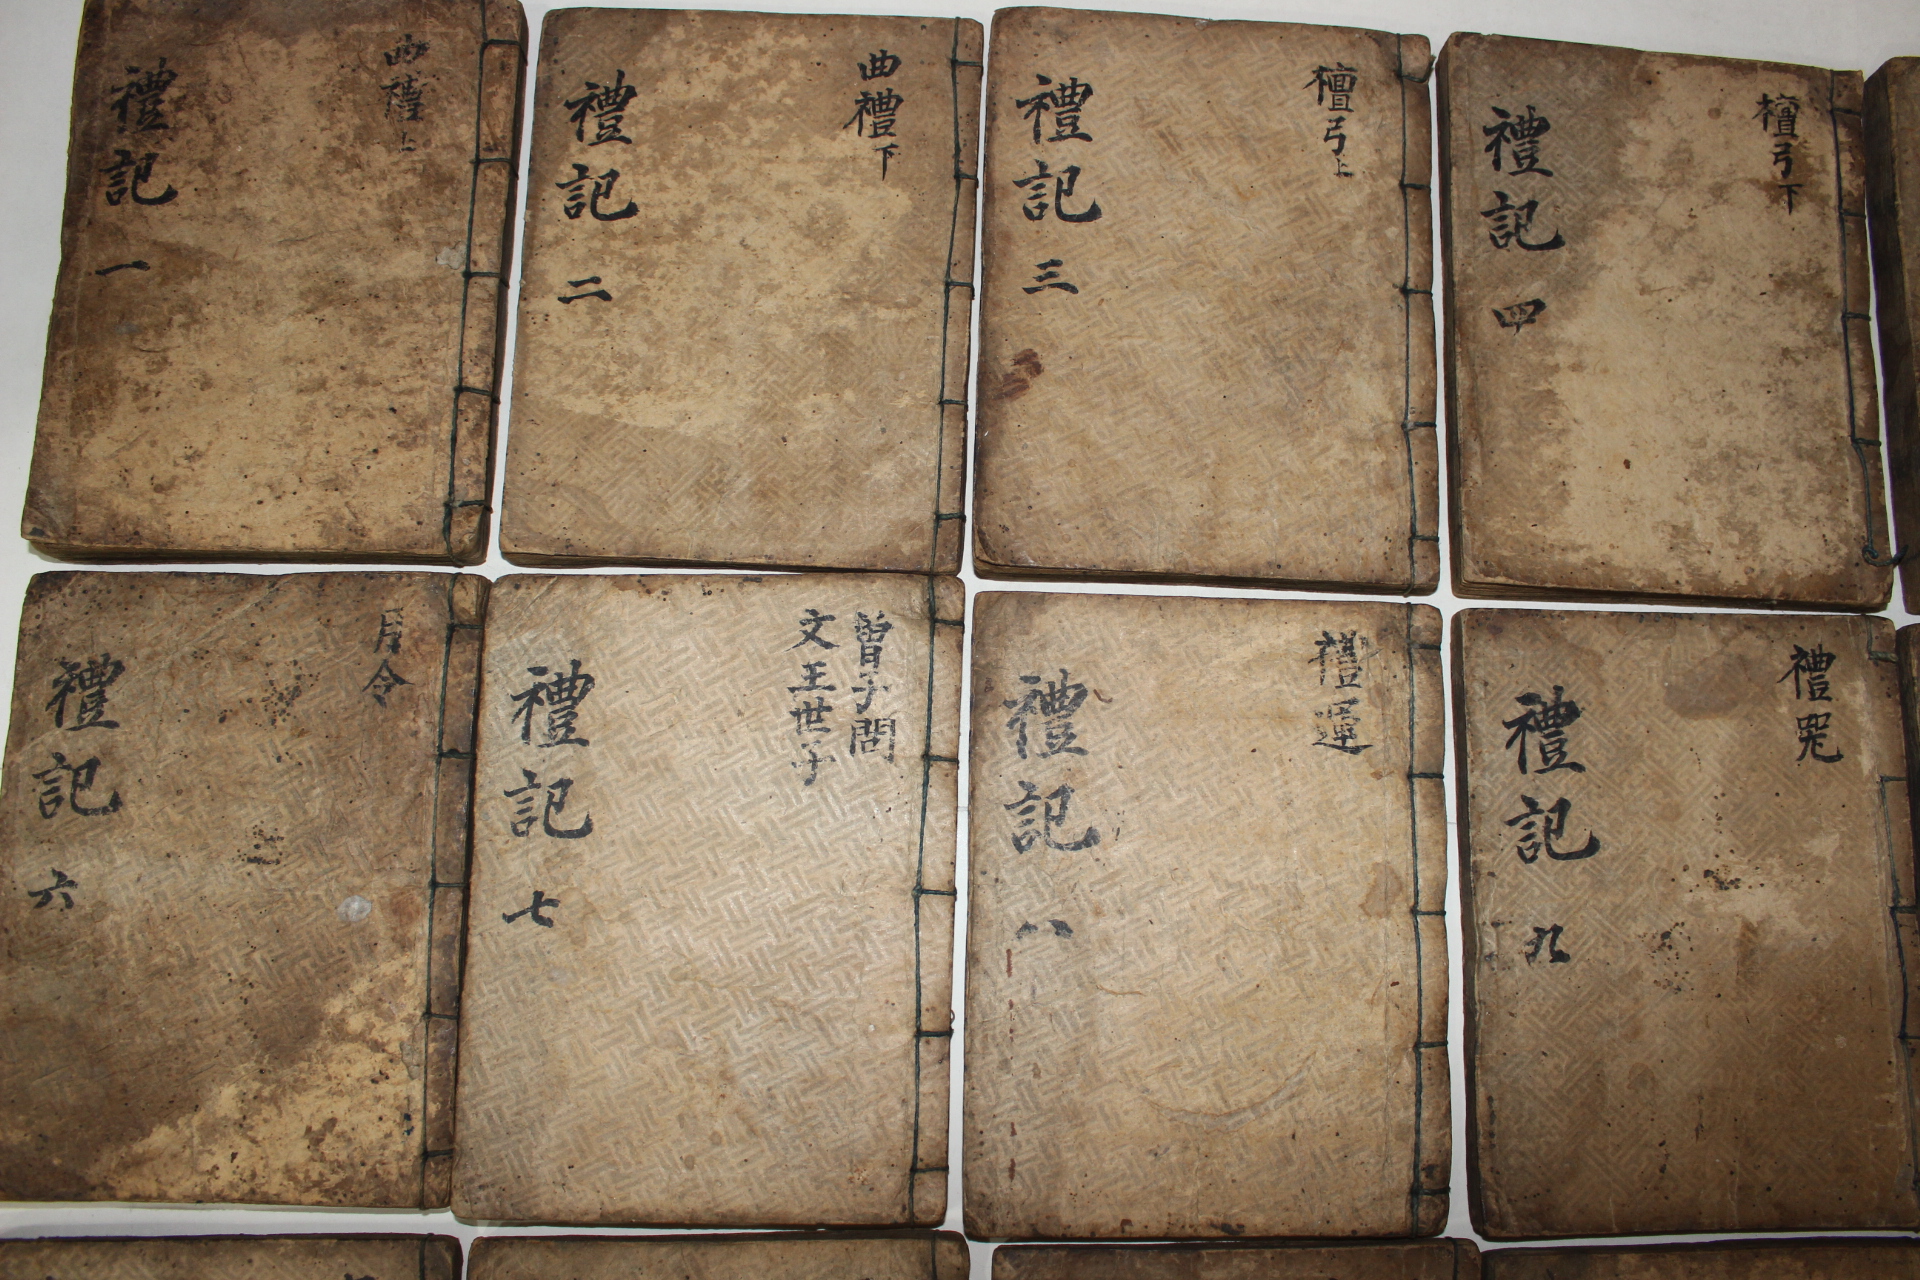 曲禮上
禮記 一
曲禮下
禮記 二
檀弓上
禮記 三
檀弓下
禮記 四
月令
禮記 六
曾子問
文王世子
禮記 七
禮運
禮記 八
禮器
禮記 九